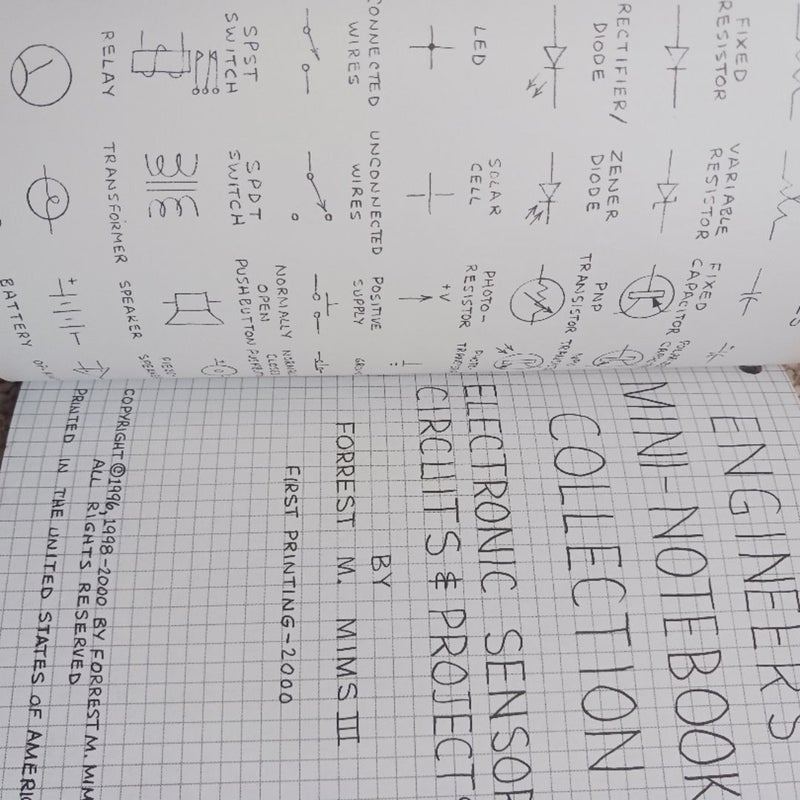 FIXED VARIABLE FIXED
RESISTOR RESISTOR CAPACITOR
RECTIFIER/ ZENER PNP
DIODE DIODE TRANSISTOR
LED SOLAR PHOTO-
CELL RESISTOR
+V
CONNECTED UNCONNECTED POSITIVE
WIRES WIRES SUPPLY
SPST SPDT NORMALLY
SWITCH SWITCH OPEN
PUSHBUTTON
RELAY TRANSFORMER SPEAKER
BATTERY
ENGINEER'S
MINI-NOTEBOOK
COLLECTION
ELECTRONIC SENSOR
CIRCUITS & PROJECTS
BY
FORREST M. MIMS III
FIRST PRINTING-2000
COPYRIGHT © 1996, 1998-2000 BY FORREST M. MIM
ALL RIGHTS RESERVED
PRINTED IN THE UNITED STATES OF AMERIC